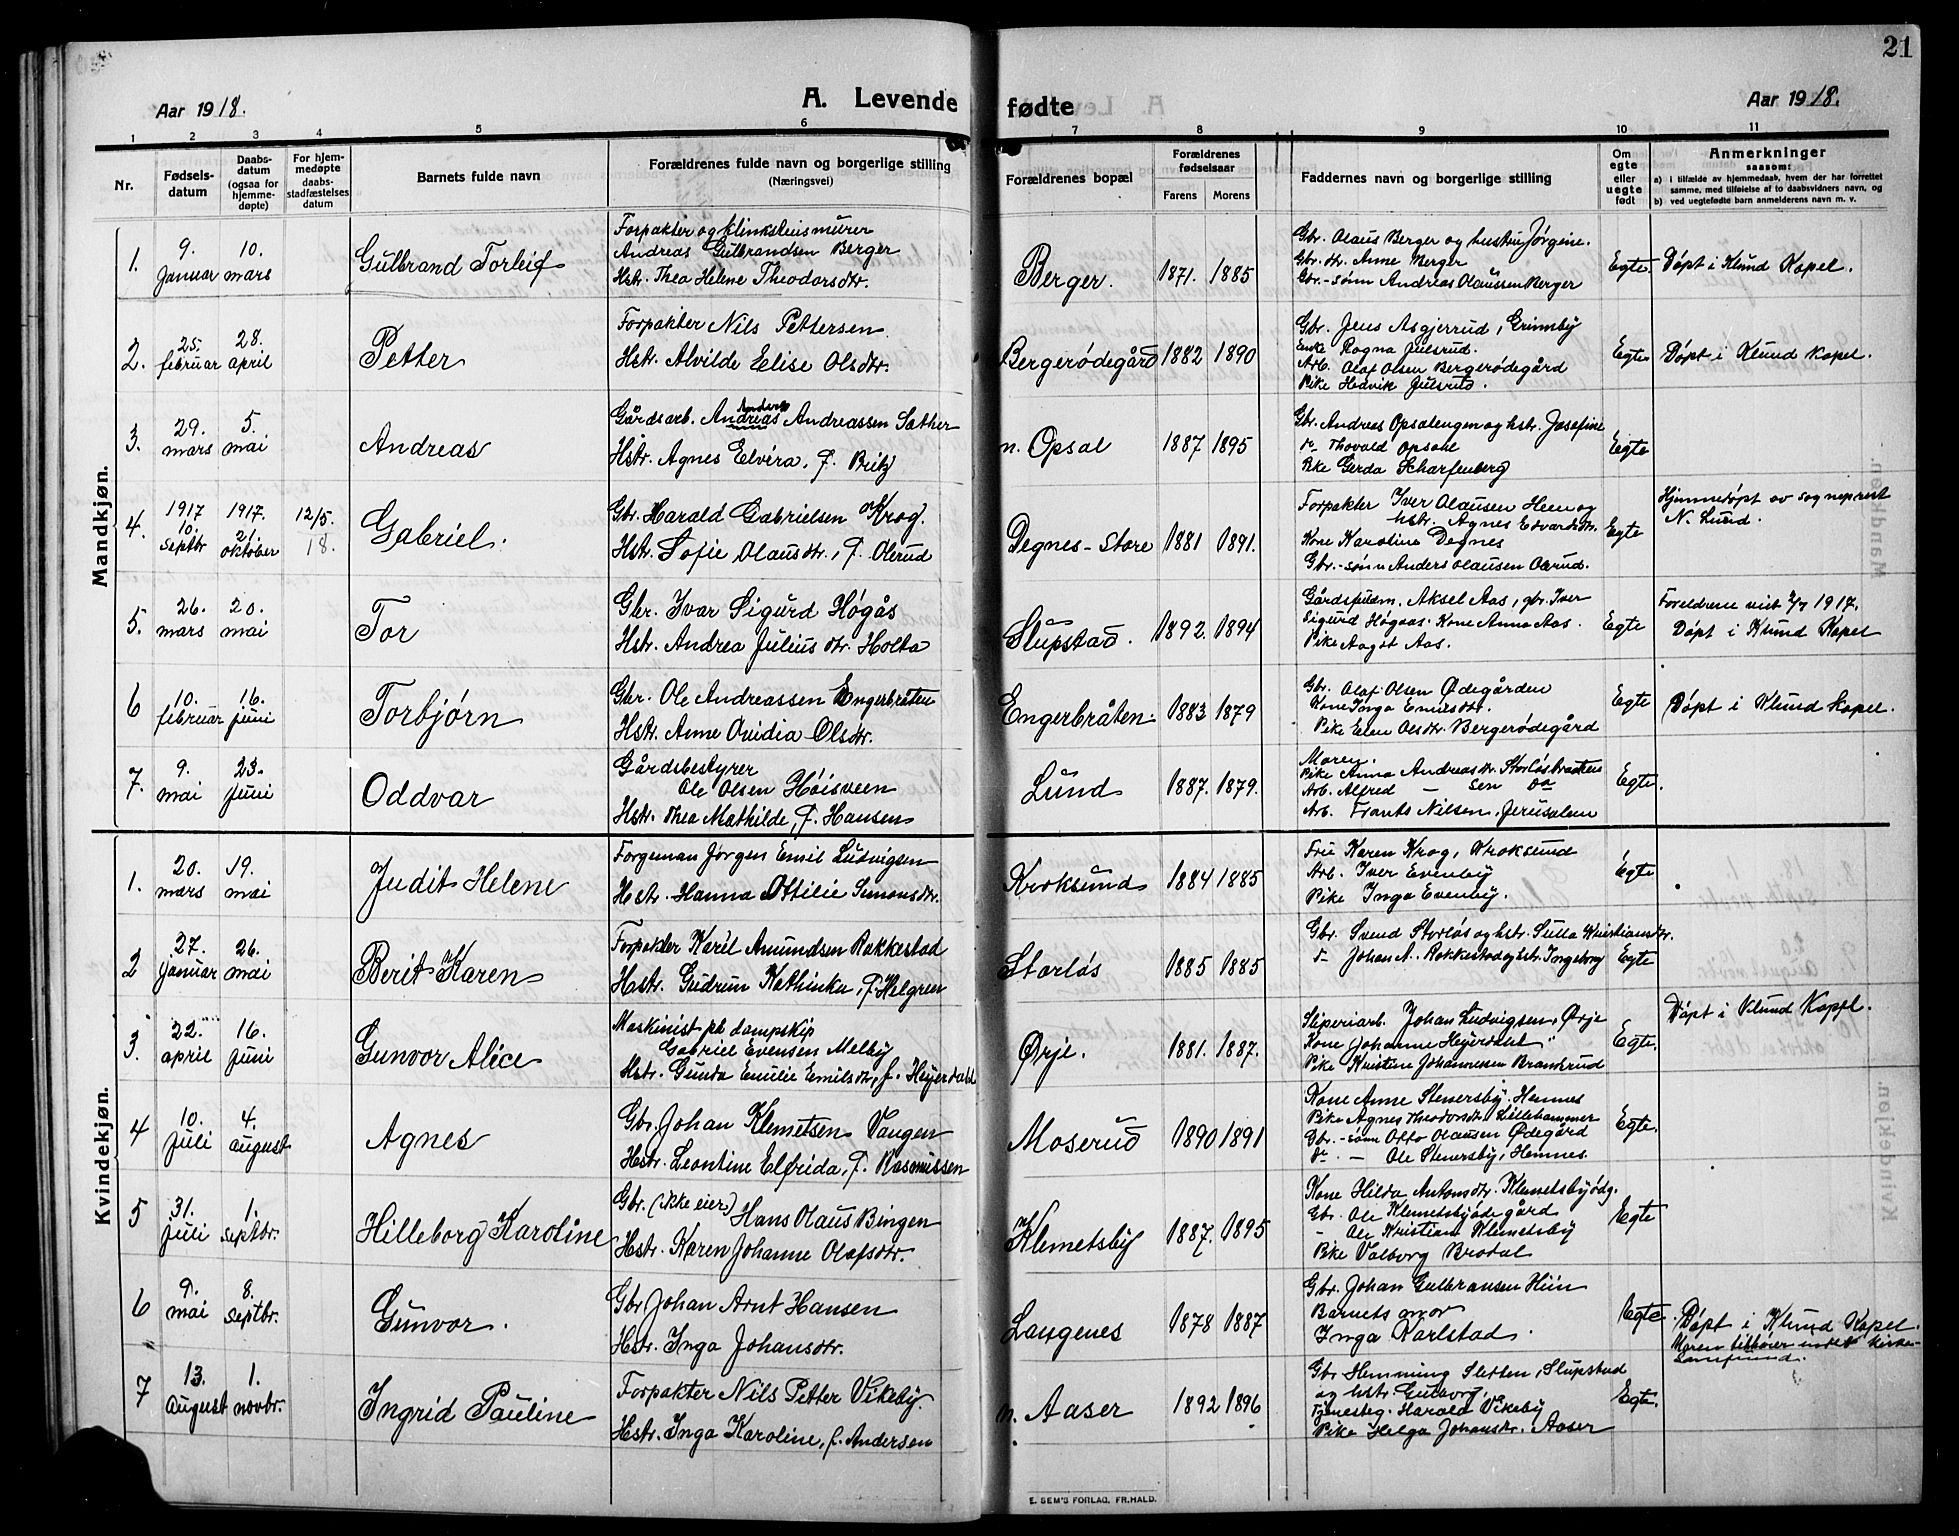 21
Aar 1918.
A. Levende fødte
Aar 1918.
1 2 3 4 5 6 7 8 9 10 11
Nr.
Fødsels-
datum
Daabs-
datum
(ogsaa for
hjemme-
døpte)
For hjem-
medøpte
daabs-
stadfæstelses
datum
Barnets fulde navn
Forældrenes fulde navn og borgerlige stilling
(Næringsvei)
Forældrenes bopæl
Forældrenes
fødselsaar
Farens Morens
Faddernes navn og borgerlige stilling
Om
egte
eller
uegte
født
Anmerkninger
saasom:
a) i tilfælde av hjemmedaab, hvem der har forrettet
samme, med tilføielse af to daabsvidners navn, og
b) ved uegtefødte barn anmelderens navn m. v.
Mandkjøn.
1.
9.
Januar
10.
mars
Gulbrand Torleif
Forpakter og klinkstensmurer
Andreas Gulbrandsen Berger
Hstr. Thea Helene Theodorsdtr.
Berger.
1871. 1885
Gbr. Olaus Berger og hustru Jørgine.
Gbr. dtr. Anne Berger
Gbr.-sønn Andreas Olaussen Berger
Egte.
Døpt i Klund Kapel.
2.
25.
februar
28.
april
Petter
Forpakter Nils Pettersen
Hstr. Alvilde Elise Olsdtr.
Bergerødegård
1882 1890
Gbr. Jens Asgjerrud, Grimsby
Enke Ragna Julsrud.
Arb. Olaf Olsen Bergerødegård
Pike Hedvik Julsrud.
Egte
Døpt i Klund kapel.
3.
29.
mars
5.
mai
Andreas
Anders
Gårdsarb. Andreas Andreassen Sæther
Hstr. Agnes Elvira, f. Britz
n. Opsal
1887 1895
Gbr. Andreas Opsalengen og hstr. Josefine
do Thovald Opsahl
Pike Gerda Scharfenberg
Egte
4.
1917
10.
septbr
1917.
21.
oktober
12/5.
18.
Gabriel.
Gbr. Harald Gabrielsen Krog.
Hstr. Sofie Olausdtr., f. Olerud
Degnes-Store
1881 1891.
Forpakter Iver Olausen Heen og
hstr. Agnes Edvardsdtr.
Kone Karoline Degnes
Gbr.-sønn Anders Olausen Olerud.
Egte
Hjemmedøpt av sogneprest
N. Lund.
5.
26.
mars
20.
mai
Tor
Gbr. Ivar Sigurd Høgås
Hstr. Andrea Julius dtr. Holta
Slupstad.
1892. 1894
Gårdsfuldm. Aksel Aas, gbr. Iver
Sigurd Høgaas. Kone Anna Aas.
Pike Aagot Aas.
Egte
Foreldrene viet 1917.
Døpt i Klund Kapel
6
10.
februar
16.
juni
Torbjørn
Gbr. Ole Andreassen Engerbråten
Hstr. Anne Ovidia Olsdtr.
Engerbråten
1883 1879
Gbr. Olaf Olsen Ødegården
Kone Inga Emilsdtr.
Pike Elen Olsdtr. Bergerødegård
Egte
Døpt i Klund kapel.
7.
9.
mai
23.
juni
Oddvar
Gårdsbestyrer
Ole Olsen Høisveen
Hstr. Thea Mathilde, f. Hansen
Lund
1887. 1879.
Moren.
Pike Anna Andreasdtr. Storløsbraaten
Arb. Alfred — sen do
Arb. Frants Nilsen, Jerusalem
Egte.
Kvindekjøn.
1.
20.
mars
19.
mai
Judit Helene
Forgeman Jørgen Emil Ludvigsen
Hstr. Hanna Ottilie Simonsdtr.
Kroksund
1884 1885
Fru Karen Krog, Kroksund
Arb. Iver Evenby
Pike Inga Evenby.
Egte
2
27.
januar
26.
mai
Berit Karen
Forpakter Karel Amundsen Rakkestad
Hstr. Gudrun Kathinka, f. Helgren
Storløs
1885 1885
Gbr. Svend Storløs og hstr. Julla Kristiansdtr.
do Johan A. Rakkestad og hstr. Ingeborg
Egte
3
22.
april
16.
juni
Gunvor Alice
Maskinist på dampskip
Gabriel Evensen Melby
Hstr. Gunda Emilie Emilsdtr, f. Heyerdahl
Ørje.
1881. 1887.
Sliperiarb. Johan Ludvigsen, Ørje
Kone Johanne Heyerdahl "
Pike Kristine Johannesen Brandsrud
Egte.
Døpt i Klund Kapel.
4
10.
juli
4.
august
Agnes
Gbr. Johan Klemetsen Vangen
Hstr. Leontine Elfrida, f. Rasmussen
Moserud
1890 1891
Kone Anne Stenersby, Hemnes
Pike Agnes Theodorsdtr. Lillehammer
Gbr.-sønn Otto Olausen Ødegård
do. — Ole Stenersby, Hemnes.
Egte.
5
31.
juli
1.
septbr.
Hilleborg Karoline
Gbr. (ikke eier) Hans Olaus Bingen
Hstr. Karen Johanne Olafsdtr.
Klemetsby
1887. 1895
Kone Hilda Antonsdtr. Klemetsbyødg.
Gbr. Ole Klemetsbyødegård
- Ole Kristian Klemetsby
Pike Valborg Brodal
Egte
6
9.
mai
8.
septbr.
Gunvor.
Gbr. Johan Arnt Hansen
Hstr. Inga Johansdtr.
Langenes
1878 1887
Gbr. Johan Gulbransen Hiin
Barnets mor
Inga Karlstad.
Egte.
Døpt i Klund Kapel.
Moren tilhører intet kirke-
samfund.
7
13.
august
1.
novbr.
Ingrid Pauline
Forpakter Nils Petter Vikeby
Hstr. Inga Karoline, f. Andersen
n. Aaser
1892 1896
Gbr Hemming Sletten, Slupstad
og hstr. Gulborg.
Tjenestg. Harald Vikeby
Pike Helga Johansdtr. Aaser
Egte.
E. SEM'S FORLAG, FR.HALD.